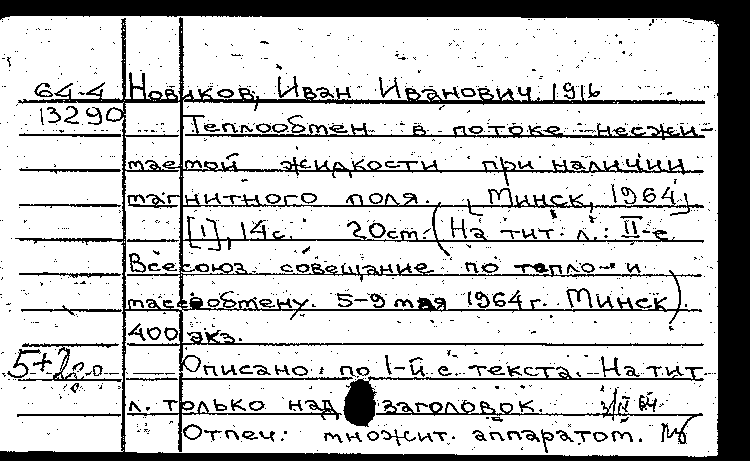 64-4 Новиков, Иван Иванович. 1916
13290 Теплообмен в потоке несжи-
маемой жидкости при наличии
магнитного поля. [Минск, 1964]
[1], 14с. 20см. (На тит. л.: II-е
Всесоюз. совещание по тепло- и
массообмену. 5-9 мая 1964г. Минск).
400 экз.
Описано по 1-й с текста. На тит
л. только надзаголовок.
Отпеч. множит. аппаратом.